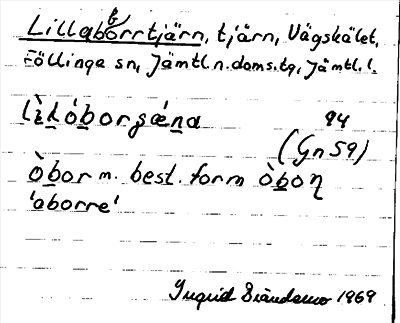 Lillabborrtjärn, tjärn, Vägskälet,
Föllinge sn, Jämtl.n.doms.tg, Jämtl. l.
94
(Gn 59)
òbor m. best. form òboɳ
'aborre'
Ingrid 1969